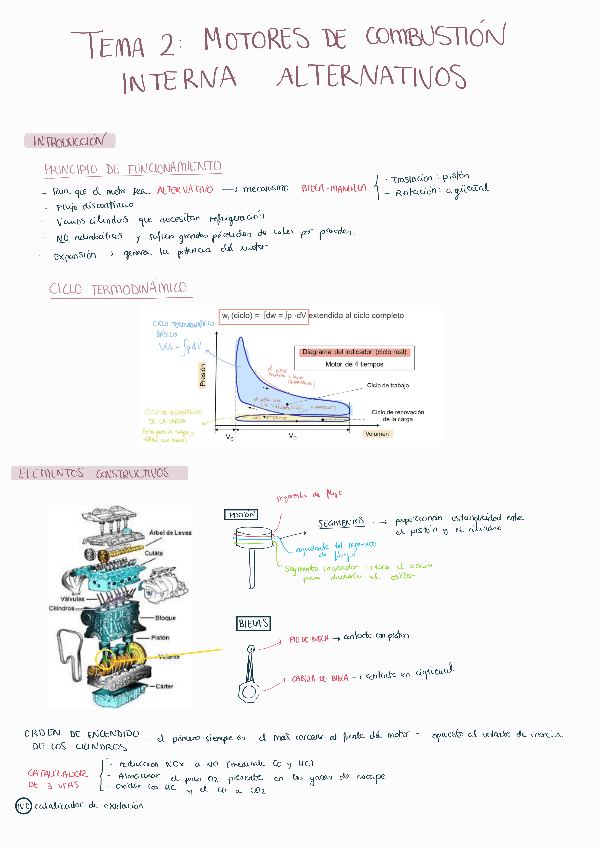 TEMA 2: MOTORES DE COMBUSTIÓN
INTERNA ALTERNATIVOS
INTRODUCCIÓN
PRINCIPIO DE FUNCIONAMIENTO
- Para que el motor sea ALTERNATIVO → mecanismo BIELA-MANIVELA
- Traslación: pistón
- Rotación: cigüeñal
- Flujo discontinuo
- Varios cilindros que necesitan refrigeración
- NO adiabáticos y sufren grandes pérdidas de calor por paredes.
- Expansión → genera la potencia del motor
CICLO TERMODINÁMICO
wᵢ (ciclo) = ∫dw = ∫p ·dV extendida al ciclo completo
CICLO TERMODINÁMICO
BÁSICO
Wᵢ = ∫pdV
Diagrama del indicador (ciclo real)
Motor de 4 tiempos
Presión
Ciclo de trabajo
CICLO DE RENOVACIÓN
DE LA CARGA
Ciclo de renovación
de la carga
V_C
V_D
Volumen
ELEMENTOS CONSTRUCTIVOS
Árbol de Levas
Culata
Válvulas
Cilindros
Bloque
Pistón
Volante
Cárter
PISTÓN
segmento de fuego
SEGMENTOS → proporcionan estanqueidad entre
el pistón y el cilindro
ayudante del segmento
de fuego
segmento rascador
para el cárter
BIELAS
PIE DE BIELA → contacto con pistón
CABEZA DE BIELA → contacto con cigüeñal
ORDEN DE ENCENDIDO: el primero siempre es el más cercano al frente del motor - opuesto al volante de inercia
DE LOS CILINDROS
CATALIZADOR
DE 3 VÍAS
- reducción NOx a NO (mediante CO y HC)
- Almacenar el poco O2 presente en los gases de escape
- Oxidar los HC y el CO a CO2
catalizador de oxidación